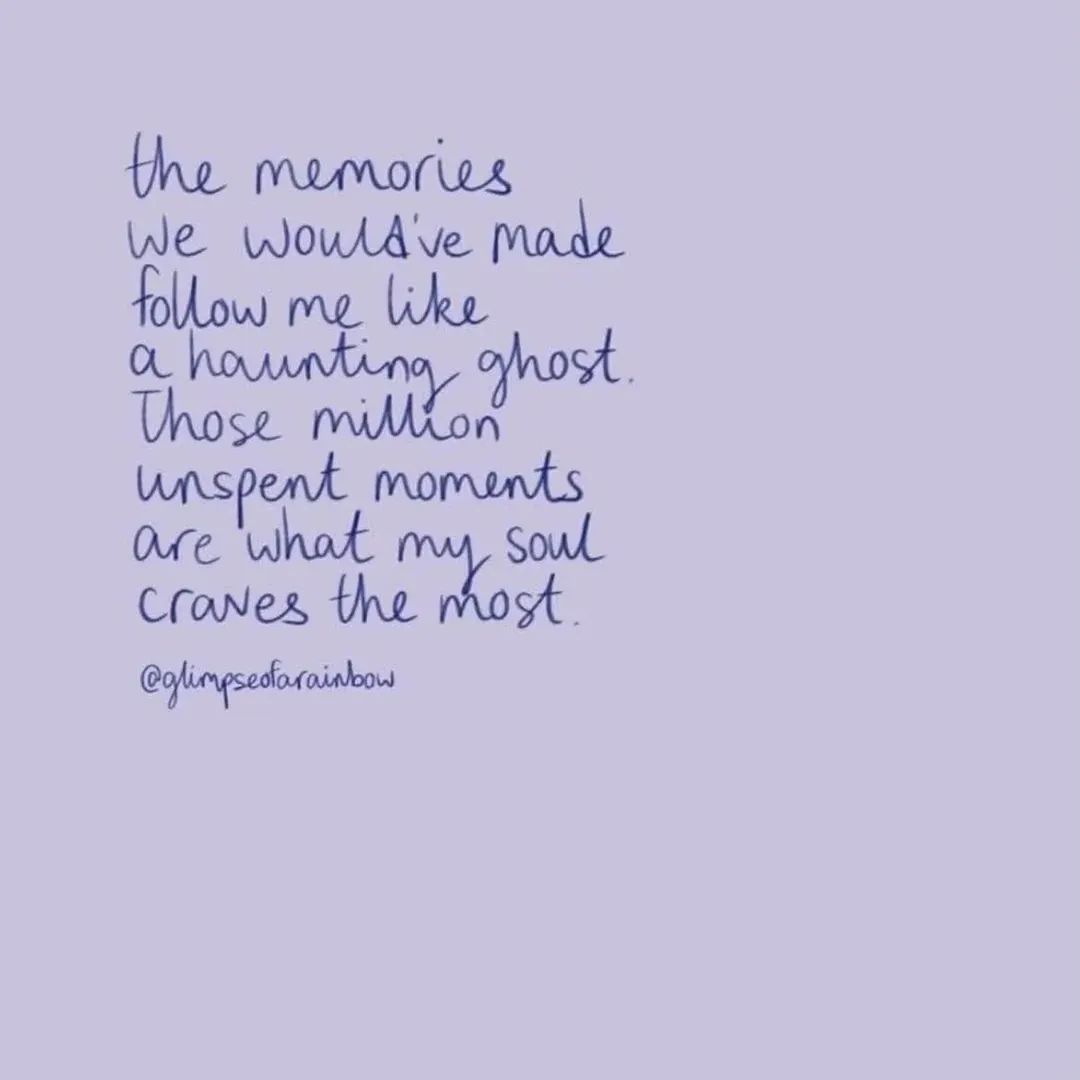 the memories
we would've made
follow me like
a haunting ghost.
Those million
unspent moments
are what my soul
craves the most.
@glimpseofarainbow